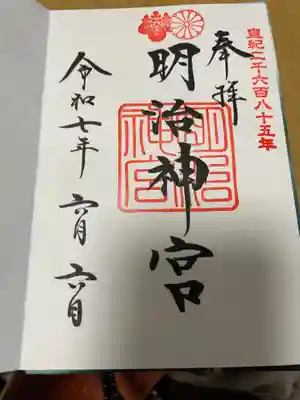 皇紀二千六百八十五年
奉拝
明治神宮
令和七年 六月 六日
明治神宮